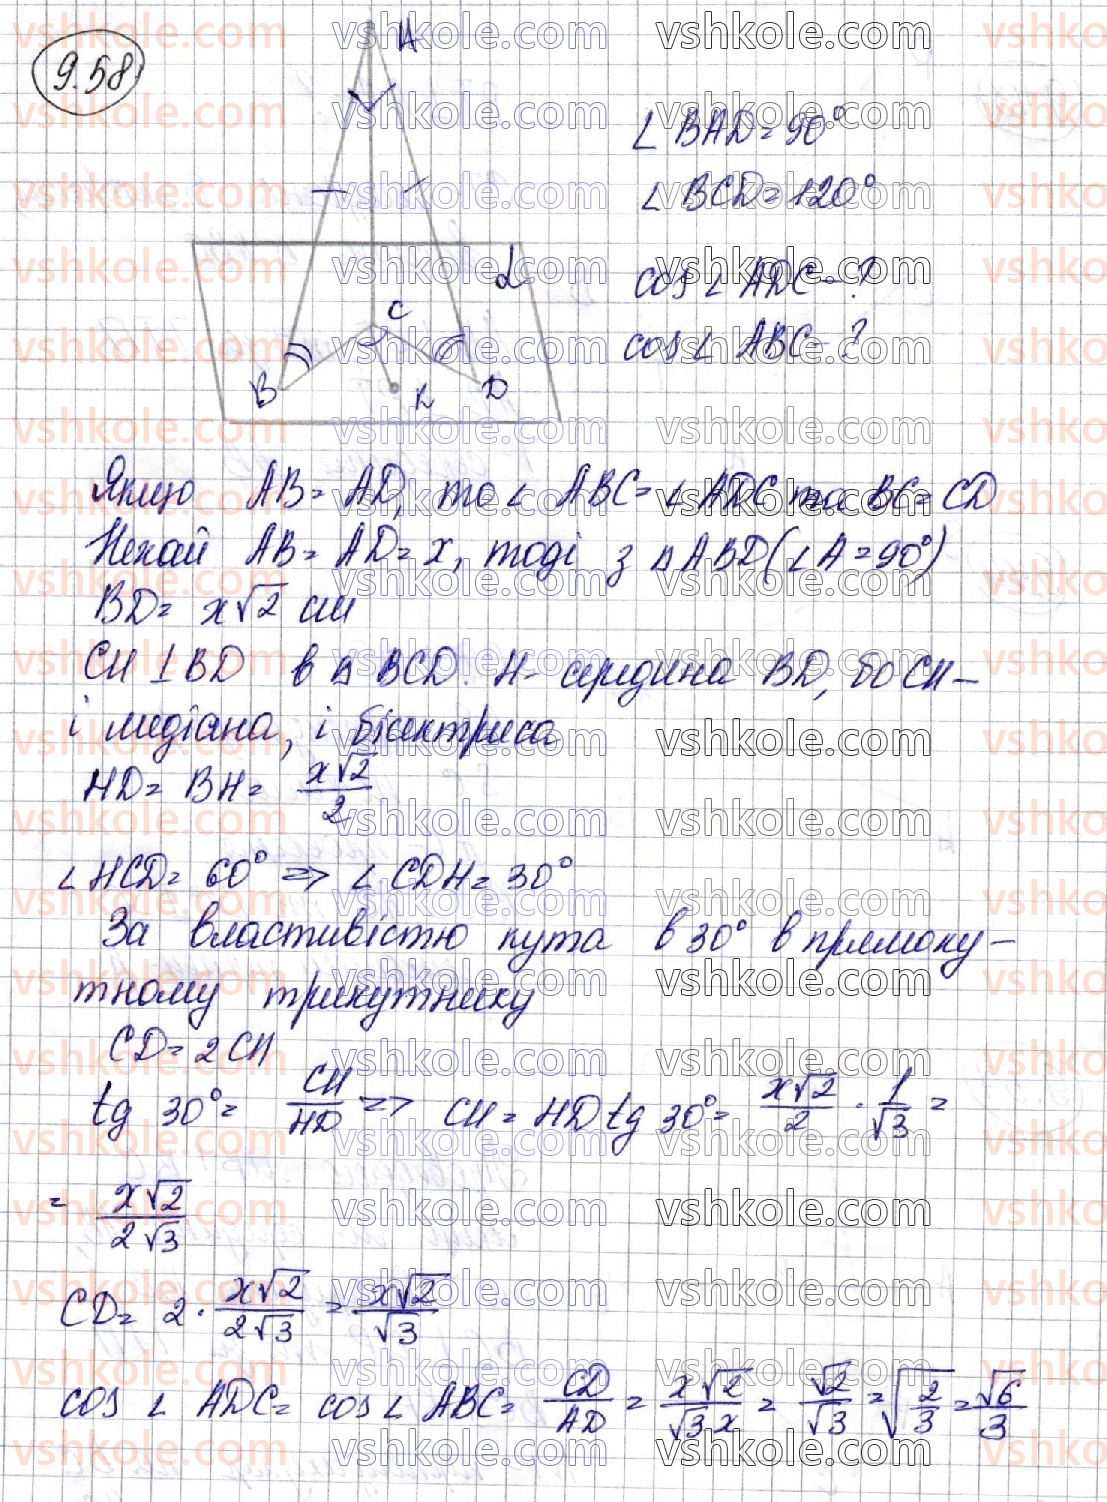 9.58
A
∠BAD = 90°
∠BCD = 120°
cos∠ADC - ?
cos∠ABC - ?
α
C
B
H
D
Якщо AB = AD, то ∠ABC = ∠ADC та BC = CD
Нехай AB = AD = x, тоді з △ABD (∠A = 90°)
BD = x√2 см
CH ⊥ BD в △BCD. H - середина BD, бо CH -
і медіана, і бісектриса
HD = BH = x√2/2
∠HCD = 60° => ∠CDH = 30°
За властивістю кута в 30° в прямоку-
тному трикутнику
CD = 2CH
tg 30° = CH/HD => CH = HD tg 30° = x√2/2 · 1/√3 =
= x√2/2√3
CD = 2 · x√2/2√3 = x√2/√3
cos∠ADC = cos∠ABC = CD/AD = x√2/√3x = √2/√3 = √(2/3) = √6/3
vshkole.com